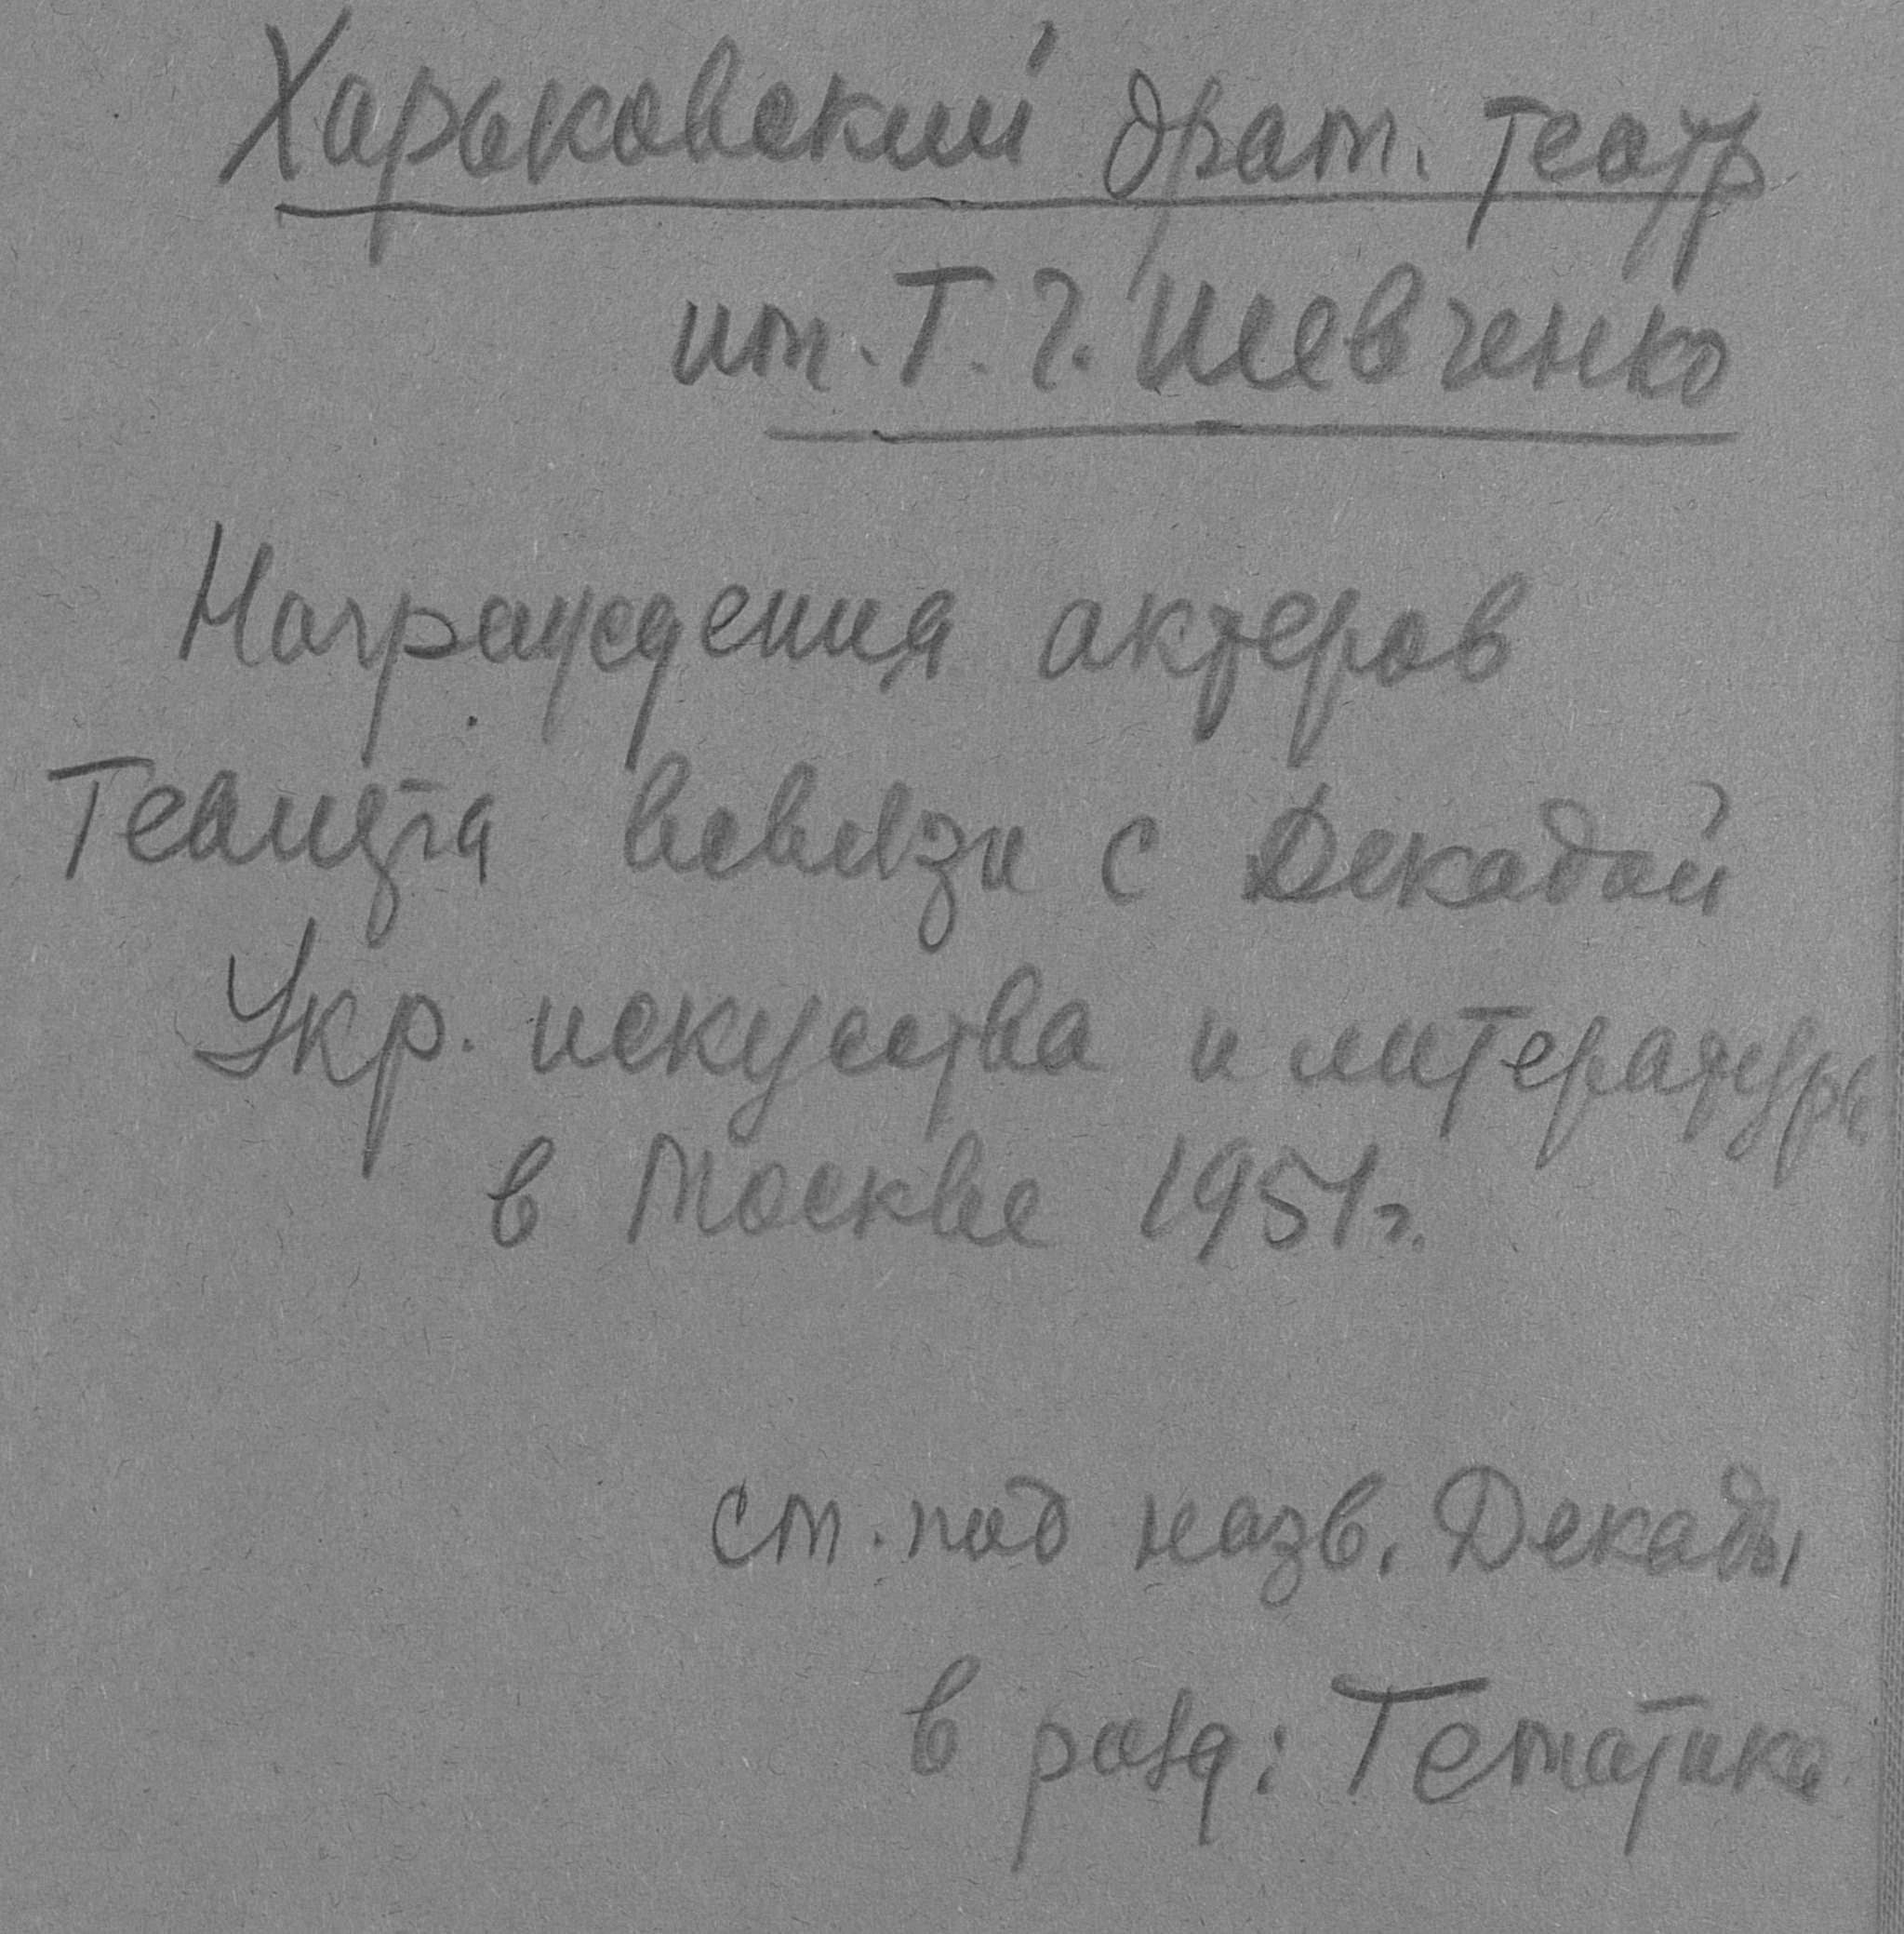 Харьковский драм. театр
им. Т. Г. Шевченко
Награждения актеров
Театра всвязи с Декадой
Укр. искуства и литературы
в Москве 1951г.
см. под назв. Декады
в разд: Тематика